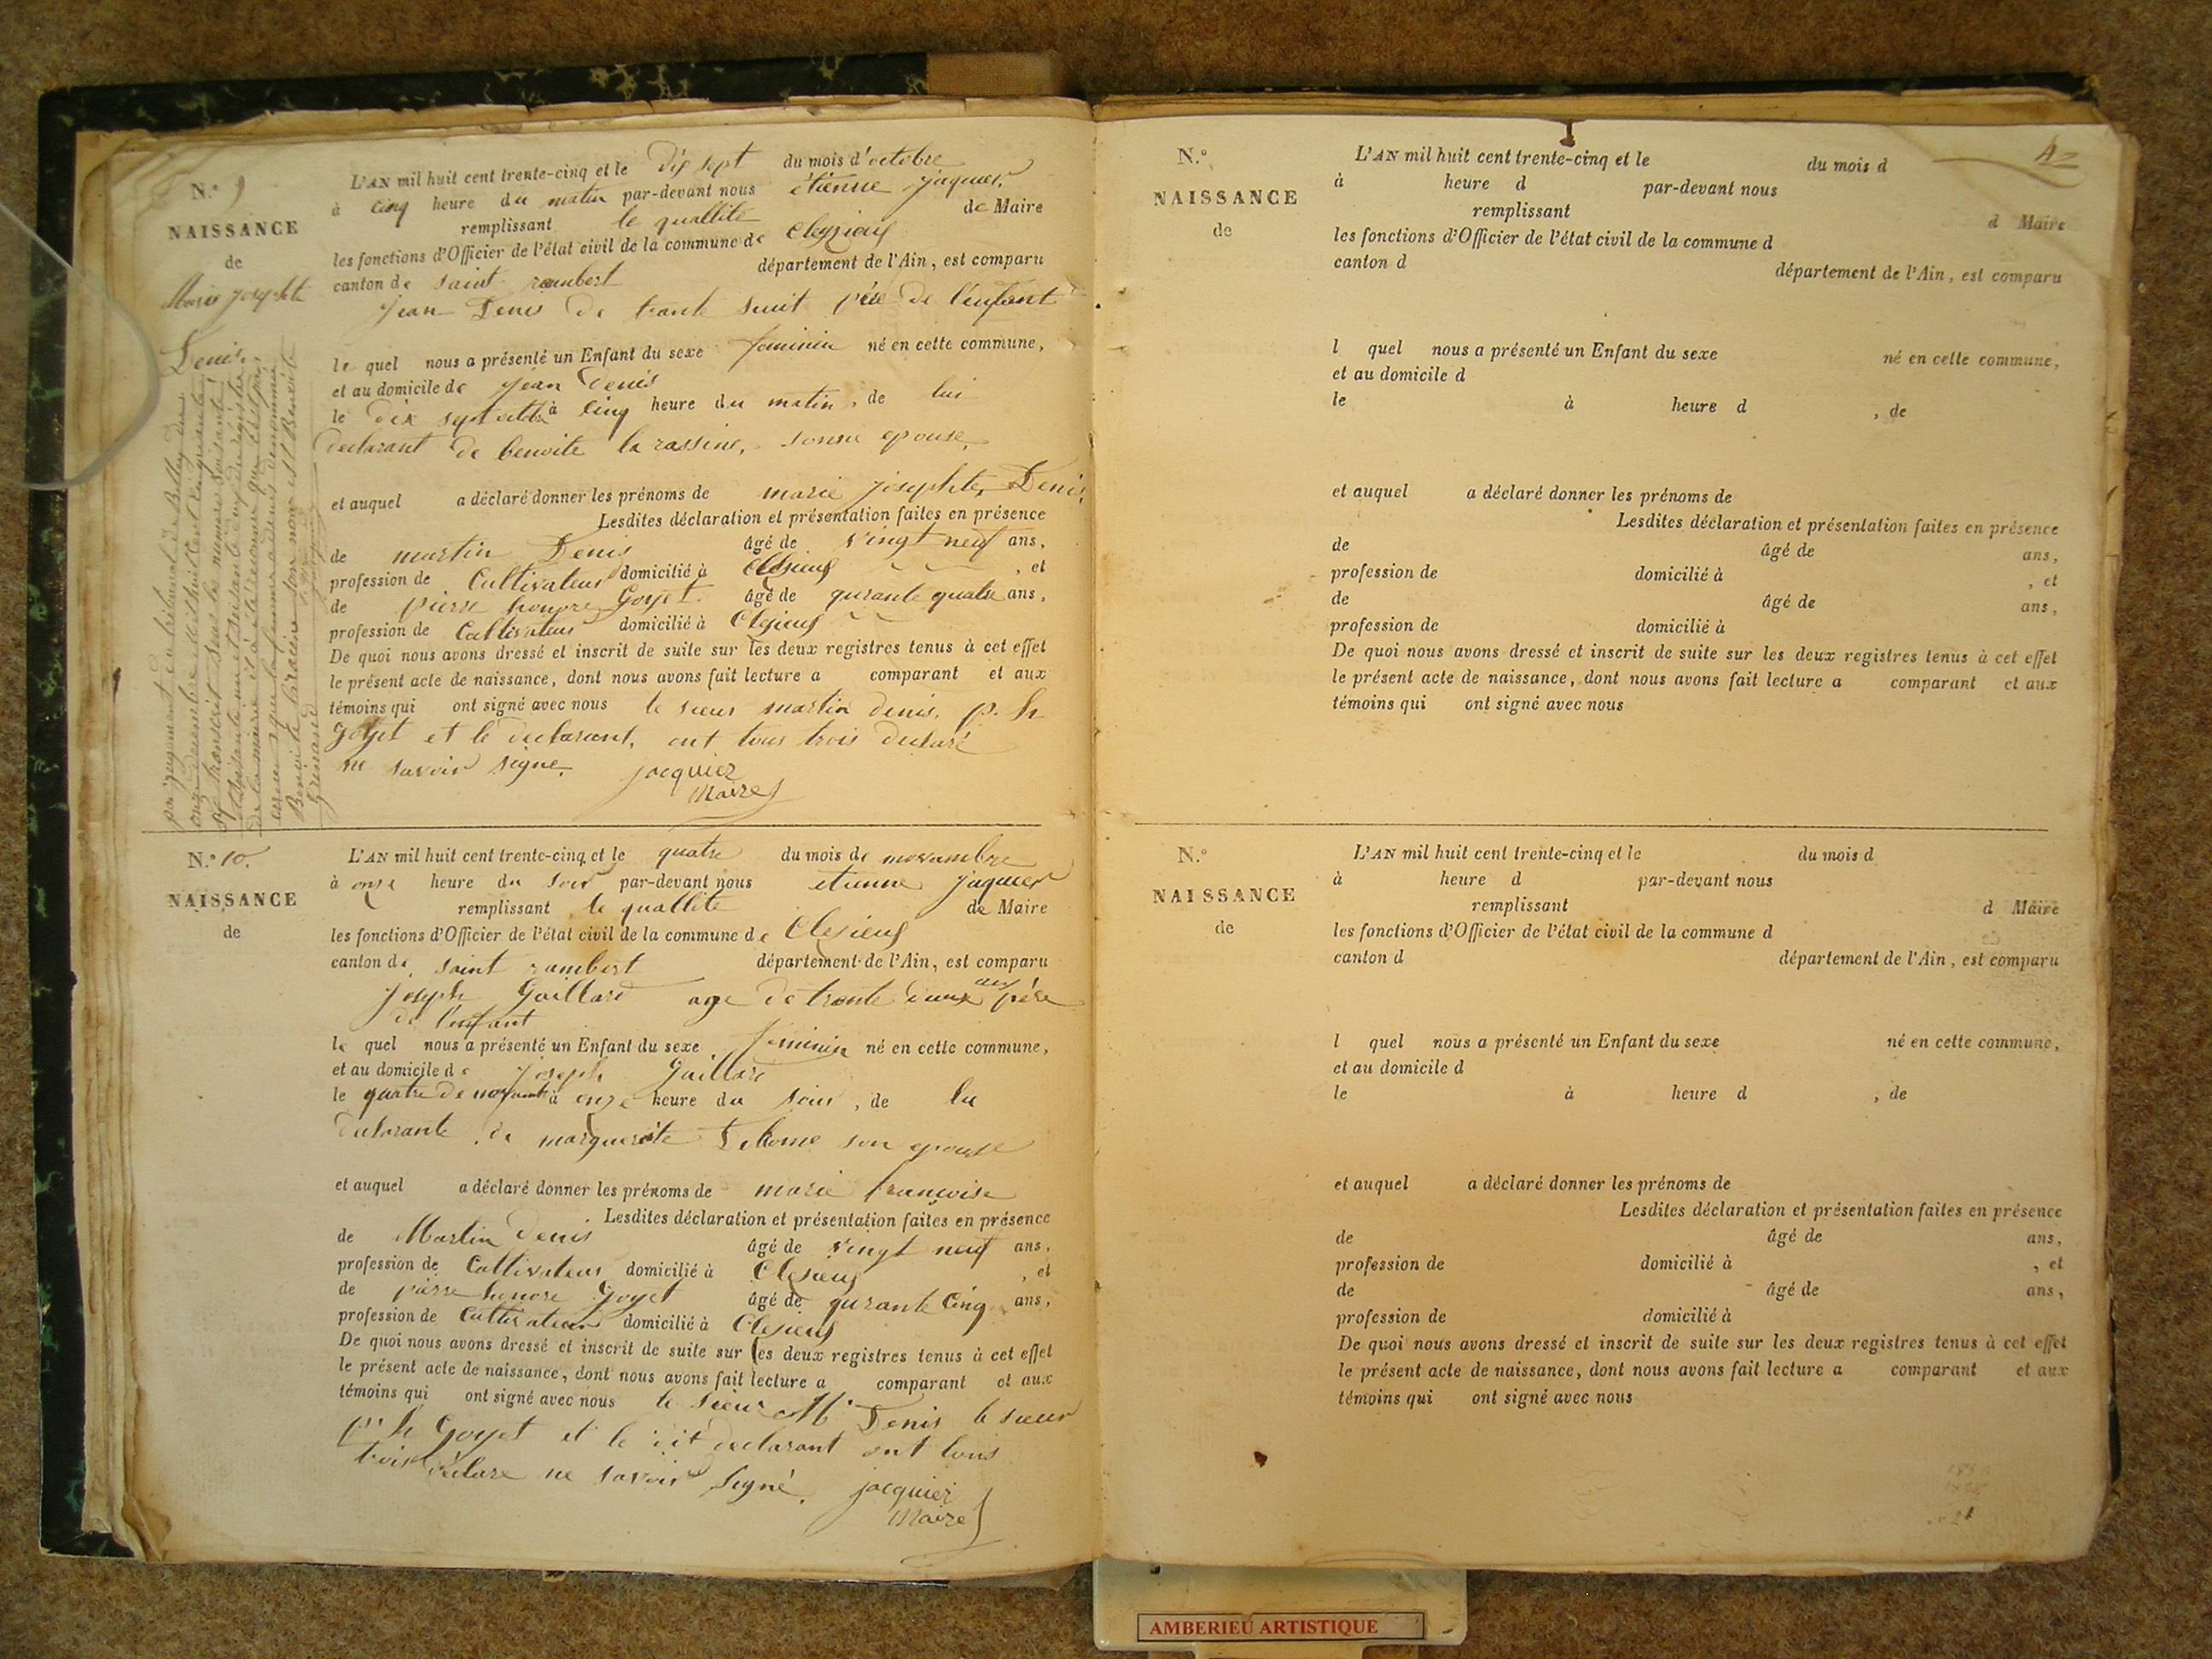 N.° 9
NAISSANCE
de
Marie josephte
Denis
L'AN mil huit cent trente-cinq et le dix sept du mois d'octobre
à cinq heure du matin par-devant nous étienne jaquier
remplissant le quallité de Maire
les fonctions d'Officier de l'état civil de la commune de Cleyzieu
canton de saint rambert département de l'Ain, est comparu
jean Denis de trante huit père de l'enfant
le quel nous a présenté un Enfant du sexe feminin né en cette commune,
et au domicile de jean Denis
le dix sept à cinq heure du matin, de lui
declarant de benoite la rassine, sonne epouse
et auquel a déclaré donner les prénoms de marie josephte, Denis,
Lesdites déclaration et présentation faites en présence
de martin Denis âgé de vingt neuf ans,
profession de Cultivateur domicilié à Clesieuf, et
de pierre honore Goyet âgé de qurante quatre ans,
profession de Cultivateur domicilié à Clesieuf
De quoi nous avons dressé et inscrit de suite sur les deux registres tenus à cet effet
le présent acte de naissance, dont nous avons fait lecture a comparant et aux
témoins qui ont signé avec nous le sieur martin denis, p. h
goyet et le declarant, ont tous trois declaré
ne savoir signe. jacquier
Maire
par jugement du tribunal de Belley du
onze décembre mil huit cent cinquante
transcrit sous le numéro soixante
de la mairie il a été reconnu que c'est par
erreur que la femme a denis denommée
Benoite Laracine son nom est Benoite
Grinand
N.° 10.
NAISSANCE
de
L'AN mil huit cent trente-cinq et le quatre du mois de novambre
à onze heure du soir par-devant nous etienne jaquier
remplissant le quallité de Maire
les fonctions d'Officier de l'état civil de la commune de Clesieuf
canton de saint rambert département de l'Ain, est comparu
joseph Gaillard age de trante deux ans père
de l'enfant
le quel nous a présenté un Enfant du sexe feminin né en cette commune,
et au domicile de joseph Gaillard
le quatre de novambre à onze heure du soir, de lui
declarante de marguerite son epouse
et auquel a déclaré donner les prénoms de marie francoise
Lesdites déclaration et présentation faites en présence
de Martin Denis âgé de vingt neuf ans,
profession de Cultivateur domicilié à Clesieuf, et
de pierre honore Goyet âgé de qurante cinq ans,
profession de Cultivateur domicilié à Clesieuf
De quoi nous avons dressé et inscrit de suite sur les deux registres tenus à cet effet
le présent acte de naissance, dont nous avons fait lecture a comparant et aux
témoins qui ont signé avec nous le sieur M. Denis le sieur
p. h Goyet et le dit declarant ont tous
trois déclare ne savoir signé. jacquier
Maire
42
N.°
NAISSANCE
de
L'AN mil huit cent trente-cinq et le du mois d
à heure d par-devant nous
remplissant d Maire
les fonctions d'Officier de l'état civil de la commune d
canton d département de l'Ain, est comparu
l quel nous a présenté un Enfant du sexe né en cette commune,
et au domicile d
le à heure d , de
et auquel a déclaré donner les prénoms de
Lesdites déclaration et présentation faites en présence
de âgé de ans,
profession de domicilié à , et
de âgé de ans,
profession de domicilié à
De quoi nous avons dressé et inscrit de suite sur les deux registres tenus à cet effet
le présent acte de naissance, dont nous avons fait lecture a comparant et aux
témoins qui ont signé avec nous
N.°
NAISSANCE
de
L'AN mil huit cent trente-cinq et le du mois d
à heure d par-devant nous
remplissant d Maire
les fonctions d'Officier de l'état civil de la commune d
canton d département de l'Ain, est comparu
l quel nous a présenté un Enfant du sexe né en cette commune,
et au domicile d
le à heure d , de
et auquel a déclaré donner les prénoms de
Lesdites déclaration et présentation faites en présence
de âgé de ans,
profession de domicilié à , et
de âgé de ans,
profession de domicilié à
De quoi nous avons dressé et inscrit de suite sur les deux registres tenus à cet effet
le présent acte de naissance, dont nous avons fait lecture a comparant et aux
témoins qui ont signé avec nous
AMBERIEU ARTISTIQUE